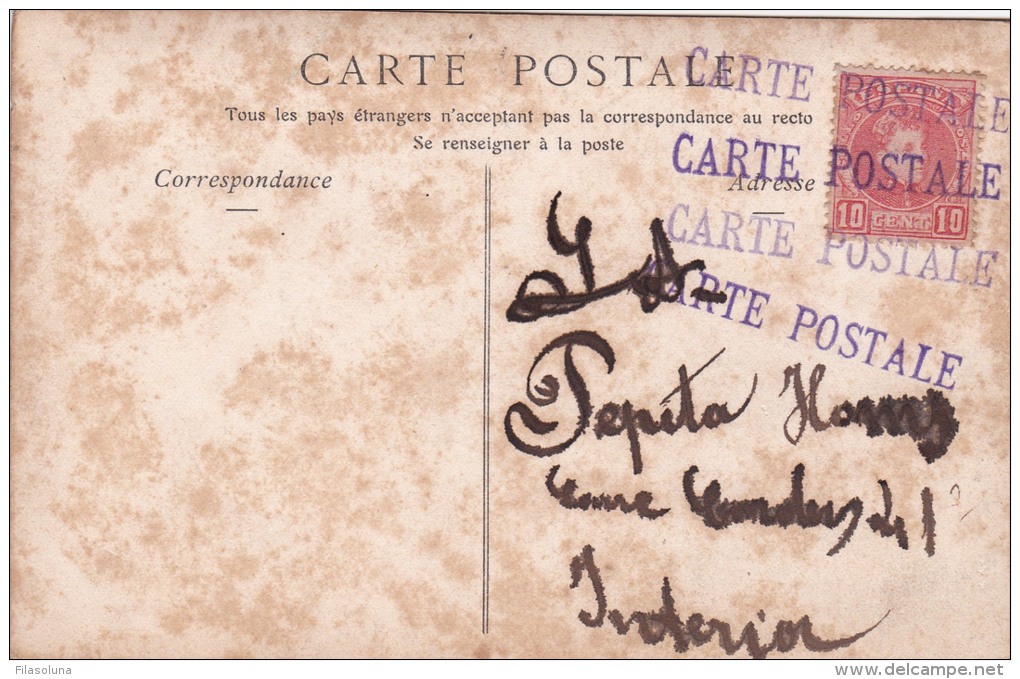 CARTE POSTALE
Tous les pays étrangers n'acceptant pas la correspondance au recto
Se renseigner à la poste
Correspondance
Adresse
CARTE POSTALE
CARTE POSTALE
CARTE POSTALE
CARTE POSTALE
10 CENT 10
Pepita
41
Interior
Filasoluna
www.delcampe.net